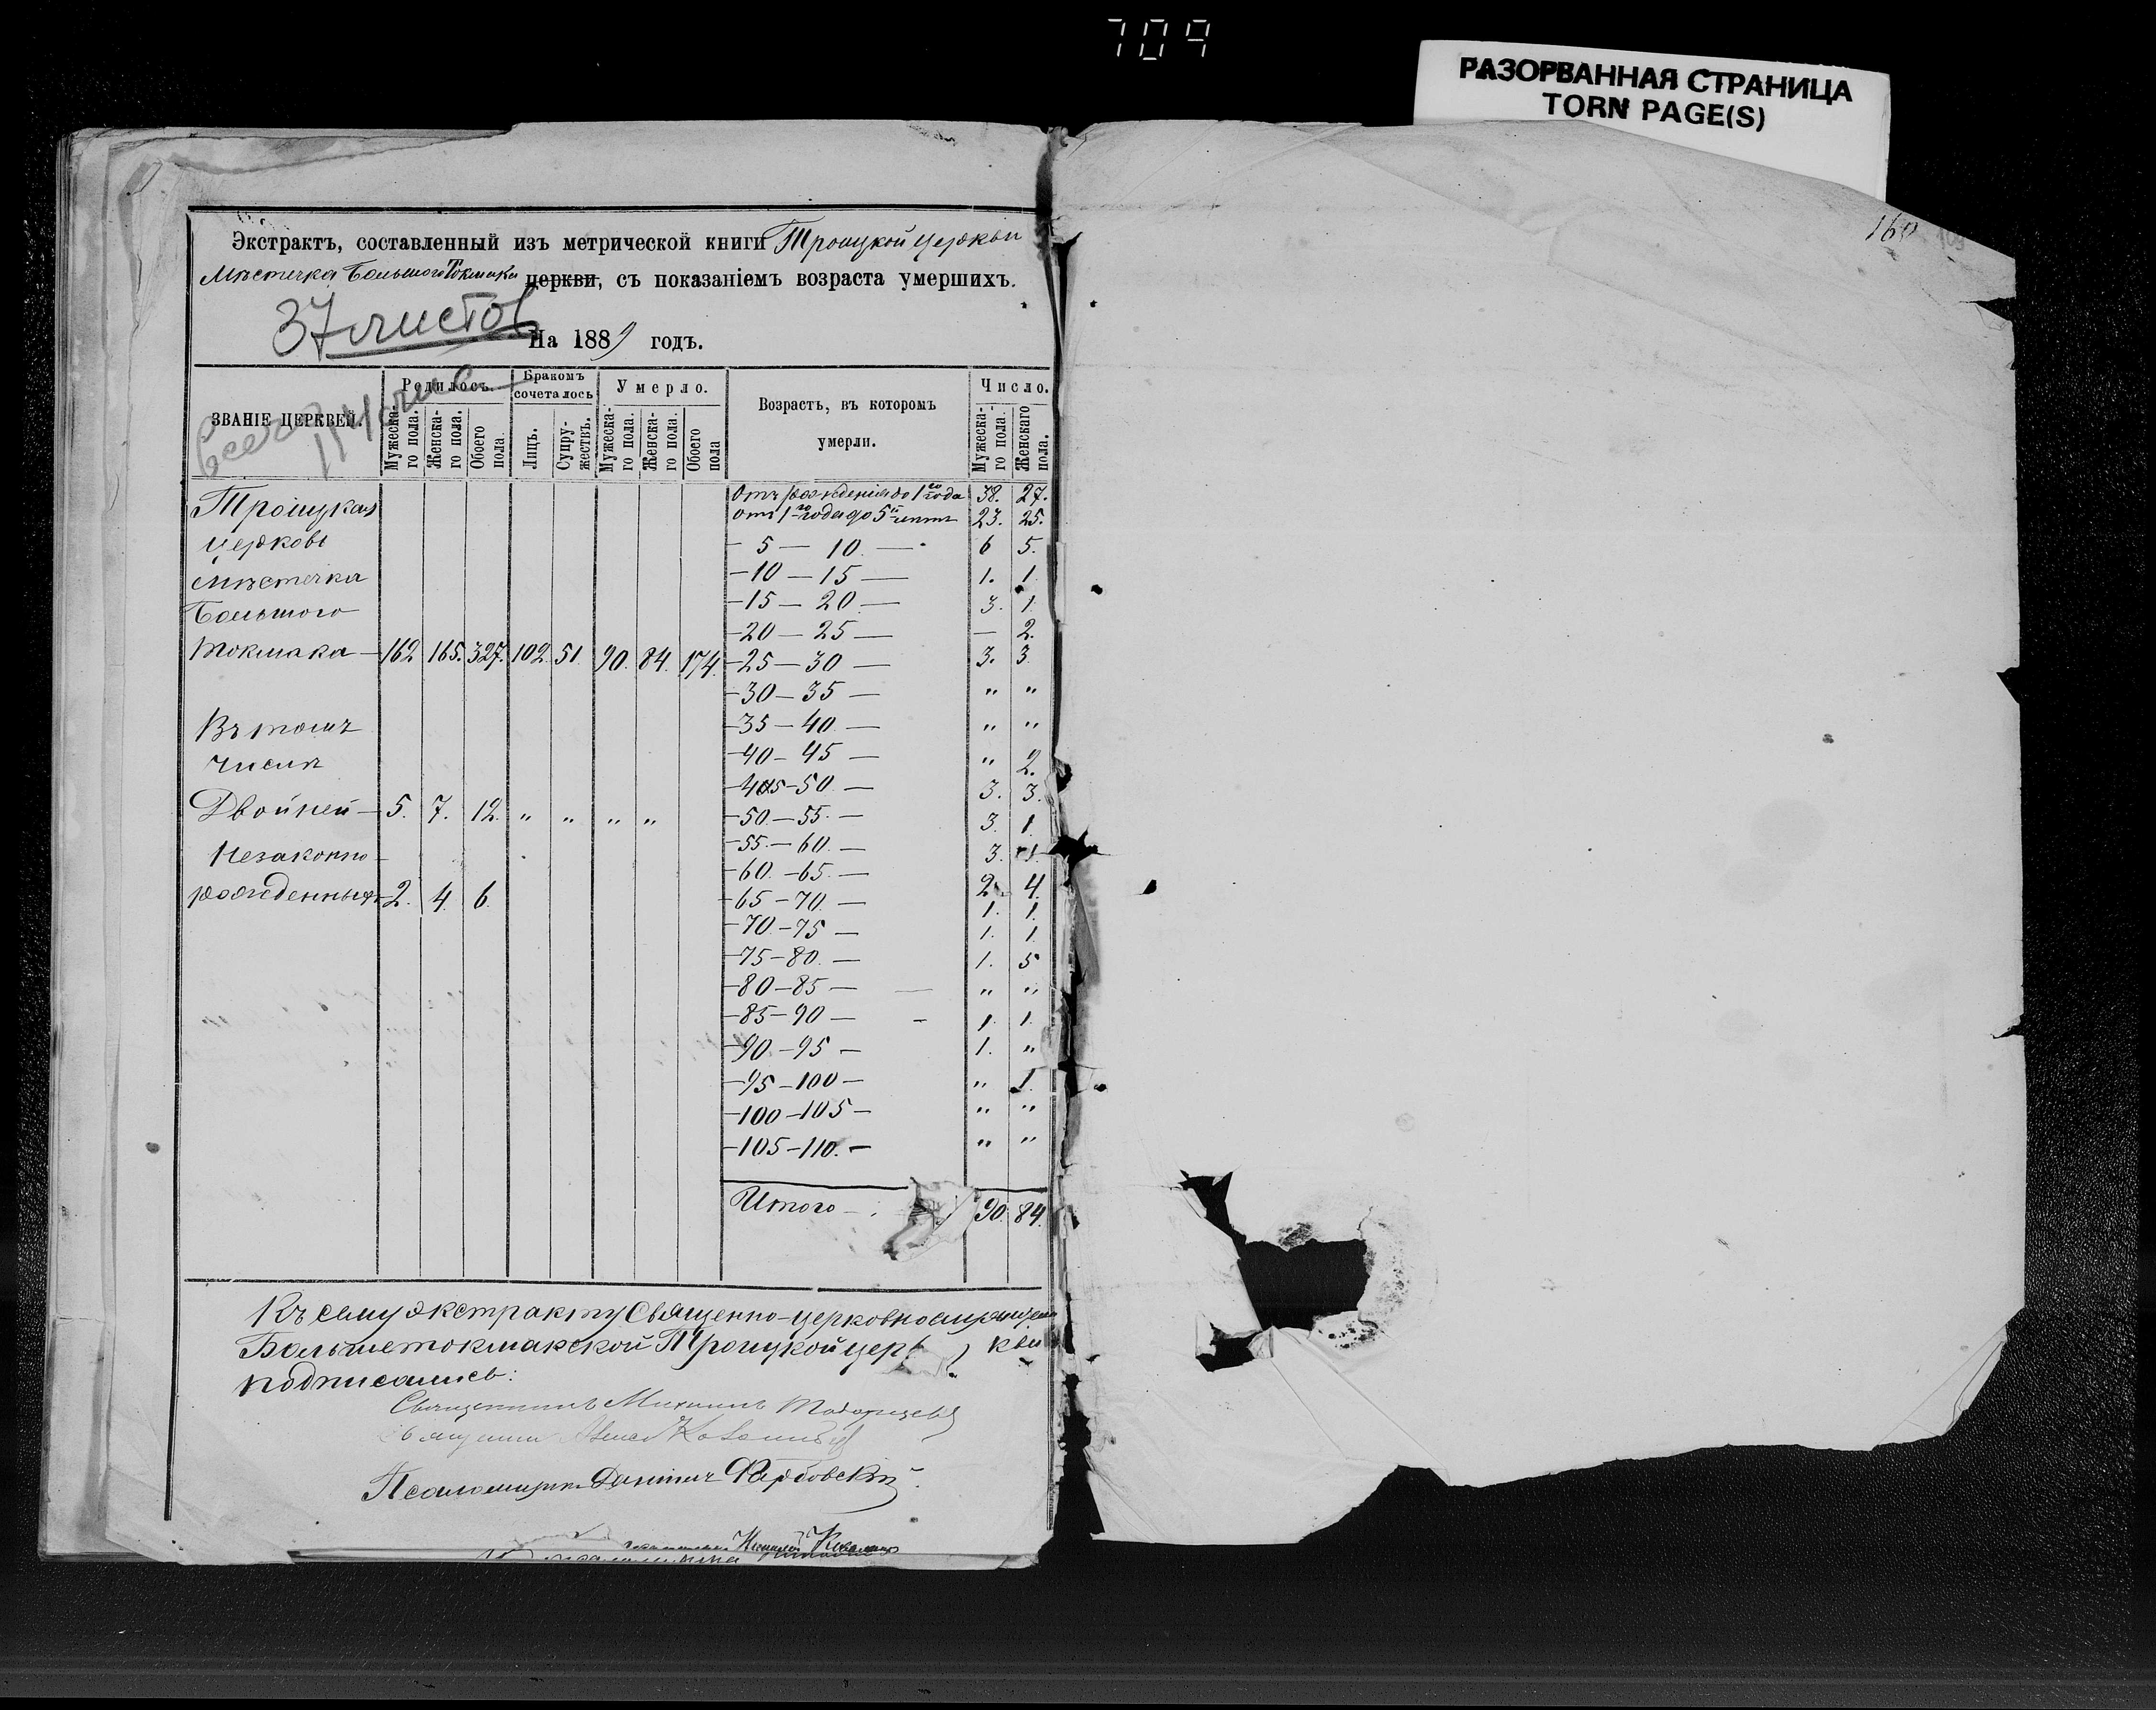 709
РАЗОРВАННАЯ СТРАНИЦА
TORN PAGE(S)
160
Экстрактъ, составленный изъ метрической книги Троицкой церкви
Мѣстечка Большого Токмака церкви, съ показаніемъ возраста умершихъ.
37 листов
На 1889 годъ.
ЗВАНІЕ ЦЕРКВЕЙ. Родилось. Бракомъ сочеталось Умерло. Возрастъ, въ которомъ умерли. Число.
Мужеска-го пола. Женска-го пола. Обоего пола. Лицъ. Супру-жествъ. Мужеска-го пола. Женска-го пола. Обоего пола Мужеска-го пола. Женскаго пола.
Троицкая Отъ рожденія до 1го года 38. 27.
отъ 1го года до 5ти лѣтъ 23. 25.
церковь — 5 — 10. — 6 5.
мѣстечка — 10 — 15 — 1. 1.
Большого — 15 — 20. — 3. 1.
— 20 — 25 — — 2.
Токмака — 162 165. 327. 102. 51. 90. 84. 174. — 25 — 30 — 3. 3.
— 30 — 35 — " "
Въ томъ — 35 — 40. — " "
числѣ — 40 — 45 — " 2.
— 45 — 50. — 3. 3.
Двойней — 5. 7. 12. " " " " — 50. — 55. — 3. 1.
Незаконно- — 55. — 60. — 3. 1.
— 60. — 65. — 2. 4.
рожденныхъ 2. 4. 6. — 65 — 70. — 1. 1.
— 70. — 75 — 1. 1.
— 75 — 80. — 1. 5
— 80 — 85 — " "
— 85 — 90 — 1. 1.
— 90. — 95 — 1. "
— 95 — 100 — " 1.
— 100 — 105 — " "
— 105 — 110. — " "
Итого — 90. 84.
Къ сему экстракту Священно-церковнослужители
Большетокмакской Троицкой церкви
подписались:
Священникъ Михаилъ
Псаломщикъ Даніилъ Фарбовскій